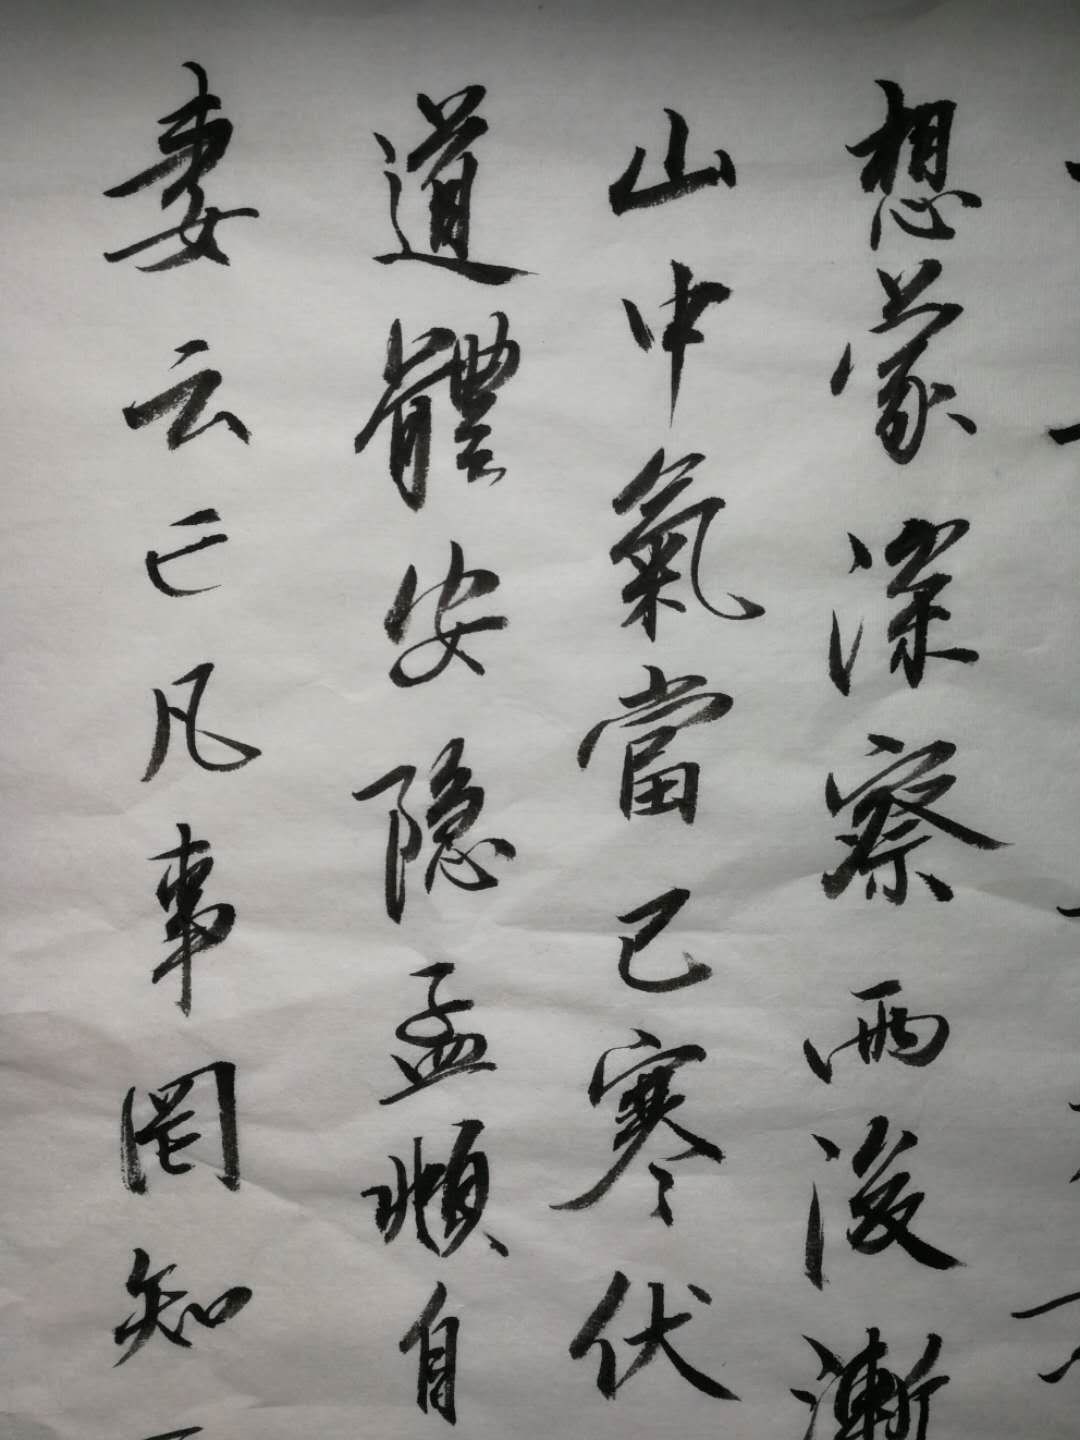 想蒙深察雨後漸
山中氣當已寒伏
道體安隐孟頫自
妻云亡凡事罔知